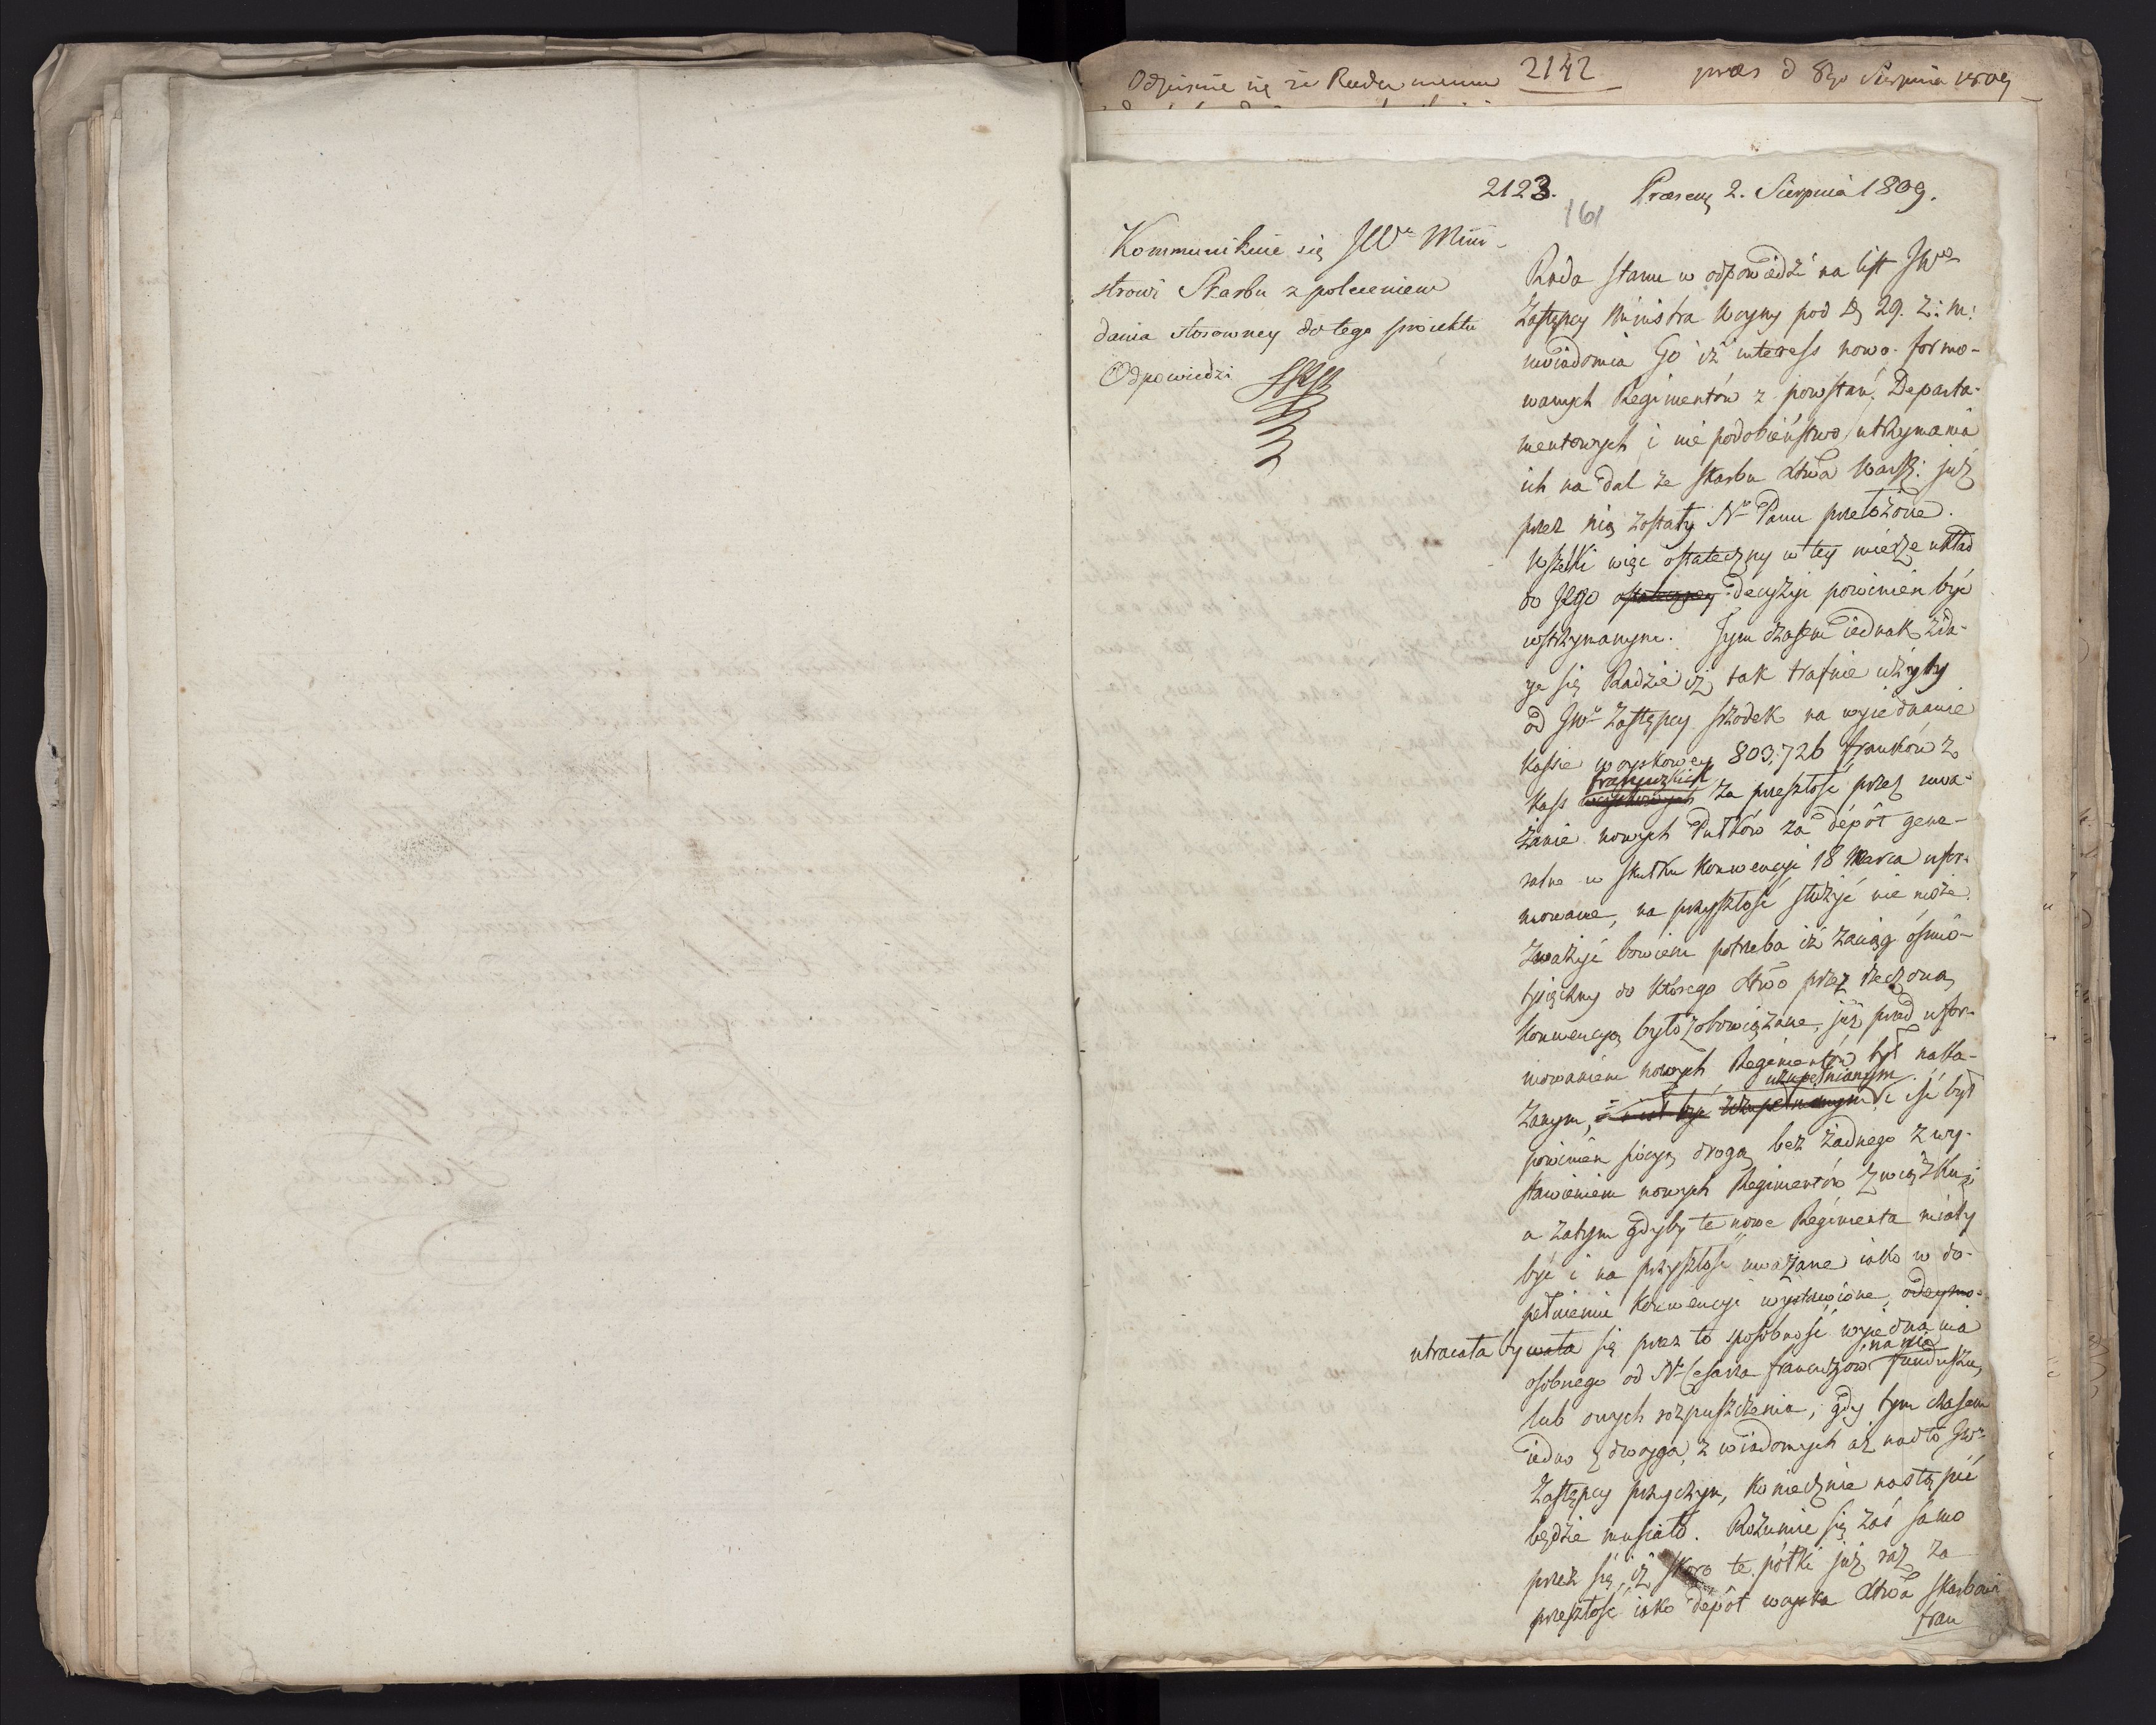 Odpisuie się że Rada 2142 præs d 8go Sierpnia 1809
2123. Præsent 2. Sierpnia 1809.
161
Kommunikuie się JWu Mini-
strowi Skarbu z poleceniem
dania stosowney do tego proiektu
Odpowiedzi
Rada Stanu w odpowiedzi na list JWo
Zastępcy Ministra Woyny pod D 29. z: m:
uwiadomia Go iż interess nowo-formo-
wanych Regimentów z powstań Departa-
mentowych i niepodobieństwo utrzymania
ich na dal ze skarbu Xtwa Warsz: już
przez nią zostały No Panu przełożone.
Wszelki więc ostateczny w tey mierze układ
do Jego ostateczney decyzyi powinien być
wstrzymanym. Tym czasem iednak zda-
ye się Radzie iż tak trafnie użyty
od JWo Zastępcy srzodek na wyiednanie
kassie woyskowey 803,726 franków z
francuzkich
kass woyskowych za przeszłość przez uwa-
żanie nowych Pułków za dépôt gene-
ralne w skutku Konwencyi 18 Marca ufor-
mowane, na przyszłość służyć nie może.
Zważyć bowiem potrzeba iż zaciąg ośmio-
tysięczny do którego Xtwo przez rzeczoną
Konwencyą było zobowiązane, już przed ufor-
mowaniem nowych Regimentów był naka-
uzupełnianym
zanym, i iść był
powinien swoją drogą bez żadnego z wy-
stawieniem nowych Regimentów związku;
a zatym gdyby te nowe Regimenta miały
być i na przyszłość uważane iako w do-
pełnieniu Konwencyi wystawione, odeymo-
utracała by wała się przez to sposobność wyiednania
na nie
osobnego od No Cesarza francuzów funduszu,
lub onych rozpuszczenia, gdy tym czasem
iedno z dwoyga, z wiadomych aż nadto JWo
Zastępcy przyczyn, koniecznie nastąpić
będzie musiało. Rozumie się zaś samo
przez się, iż skoro te półki już raz za
przeszłość iako dépôt woyska Xtwa skarbowi
fran